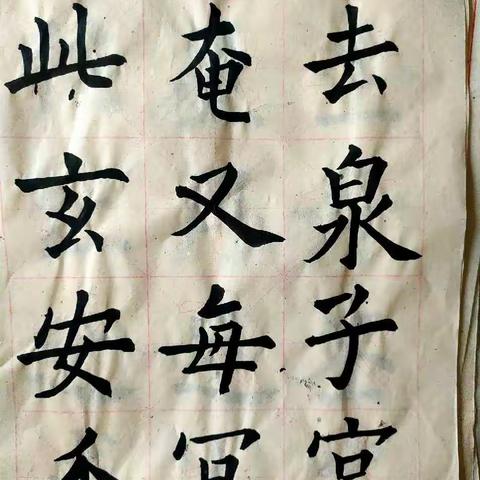 去泉子
奄又每
此玄安